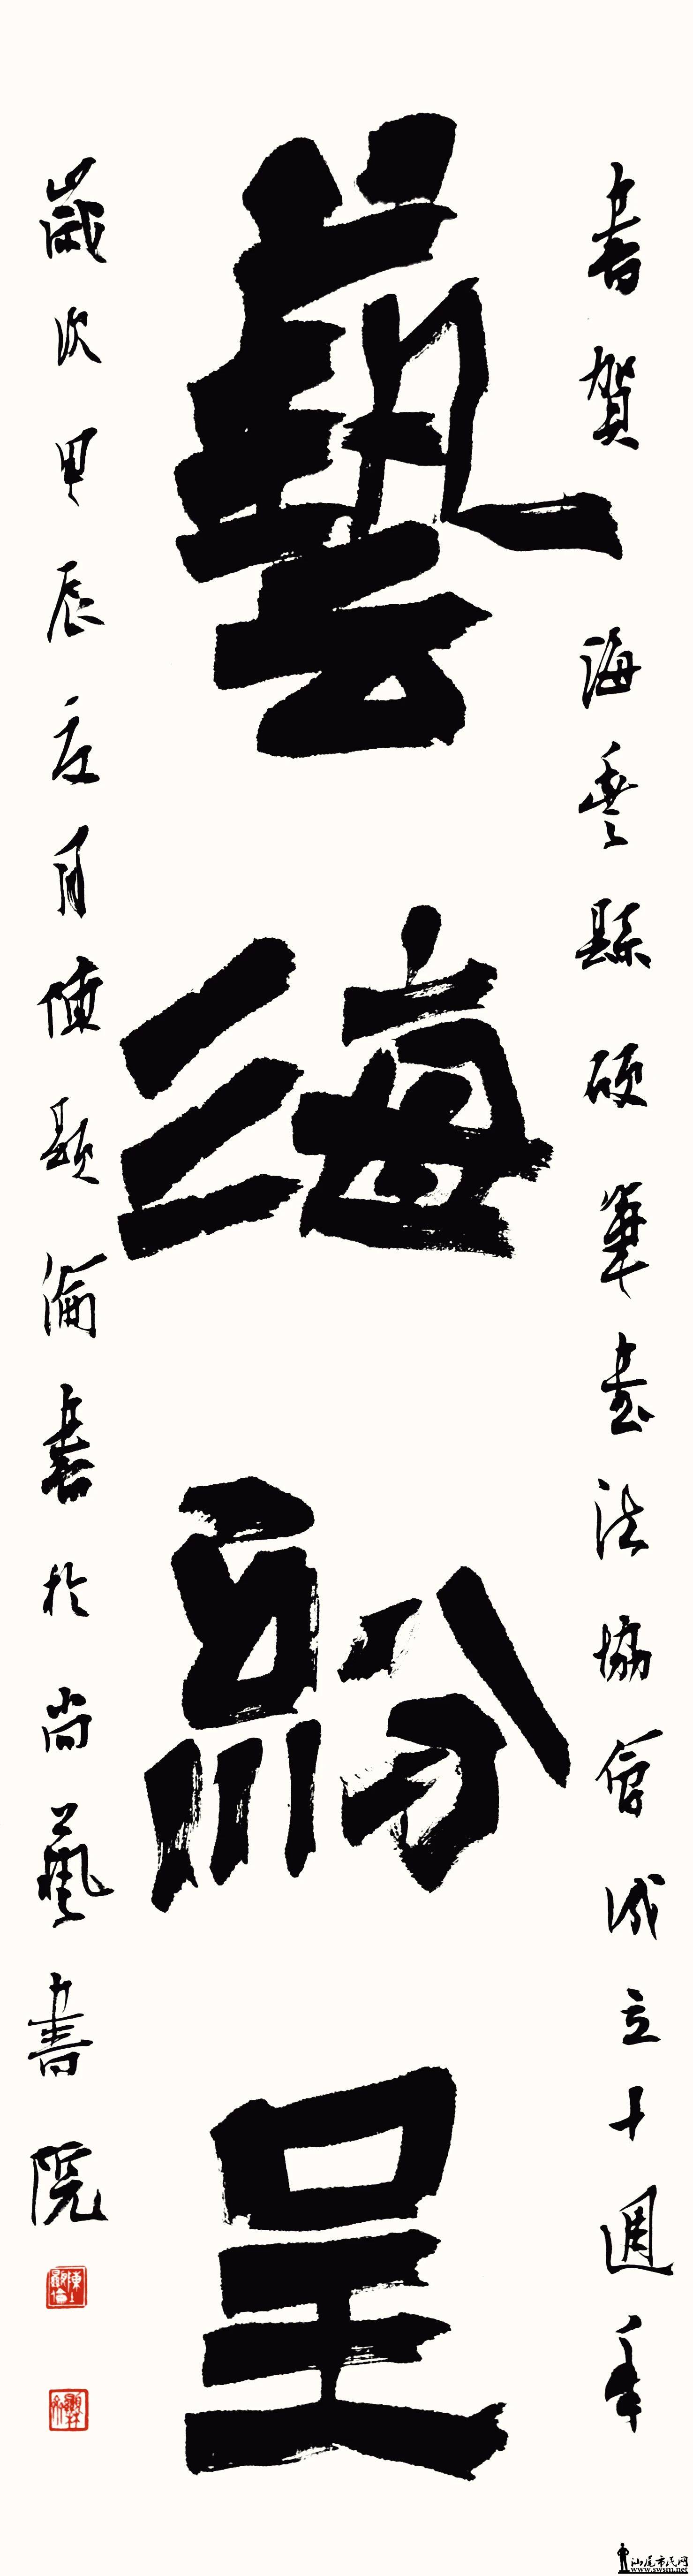 書賀海豐縣硬筆書法協會成立十週年
藝海紛呈
歲次甲辰之月陳顯倫書於尚藝書院
陳顯倫
汕尾市民网
www.swsm.net